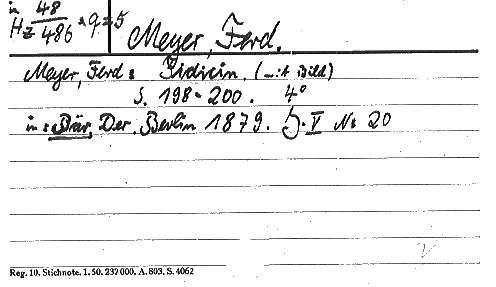 in
Hz 48/486 * 9=5
Meyer, Ferd.
Meyer, Ferd: Fidicin. (mit Bild)
S. 198-200. 4°
in: Bär, Der. Berlin 1879. J. V No 20
Reg. 10. Stichnote. 1. 50. 237 000. A. 803. S. 4062